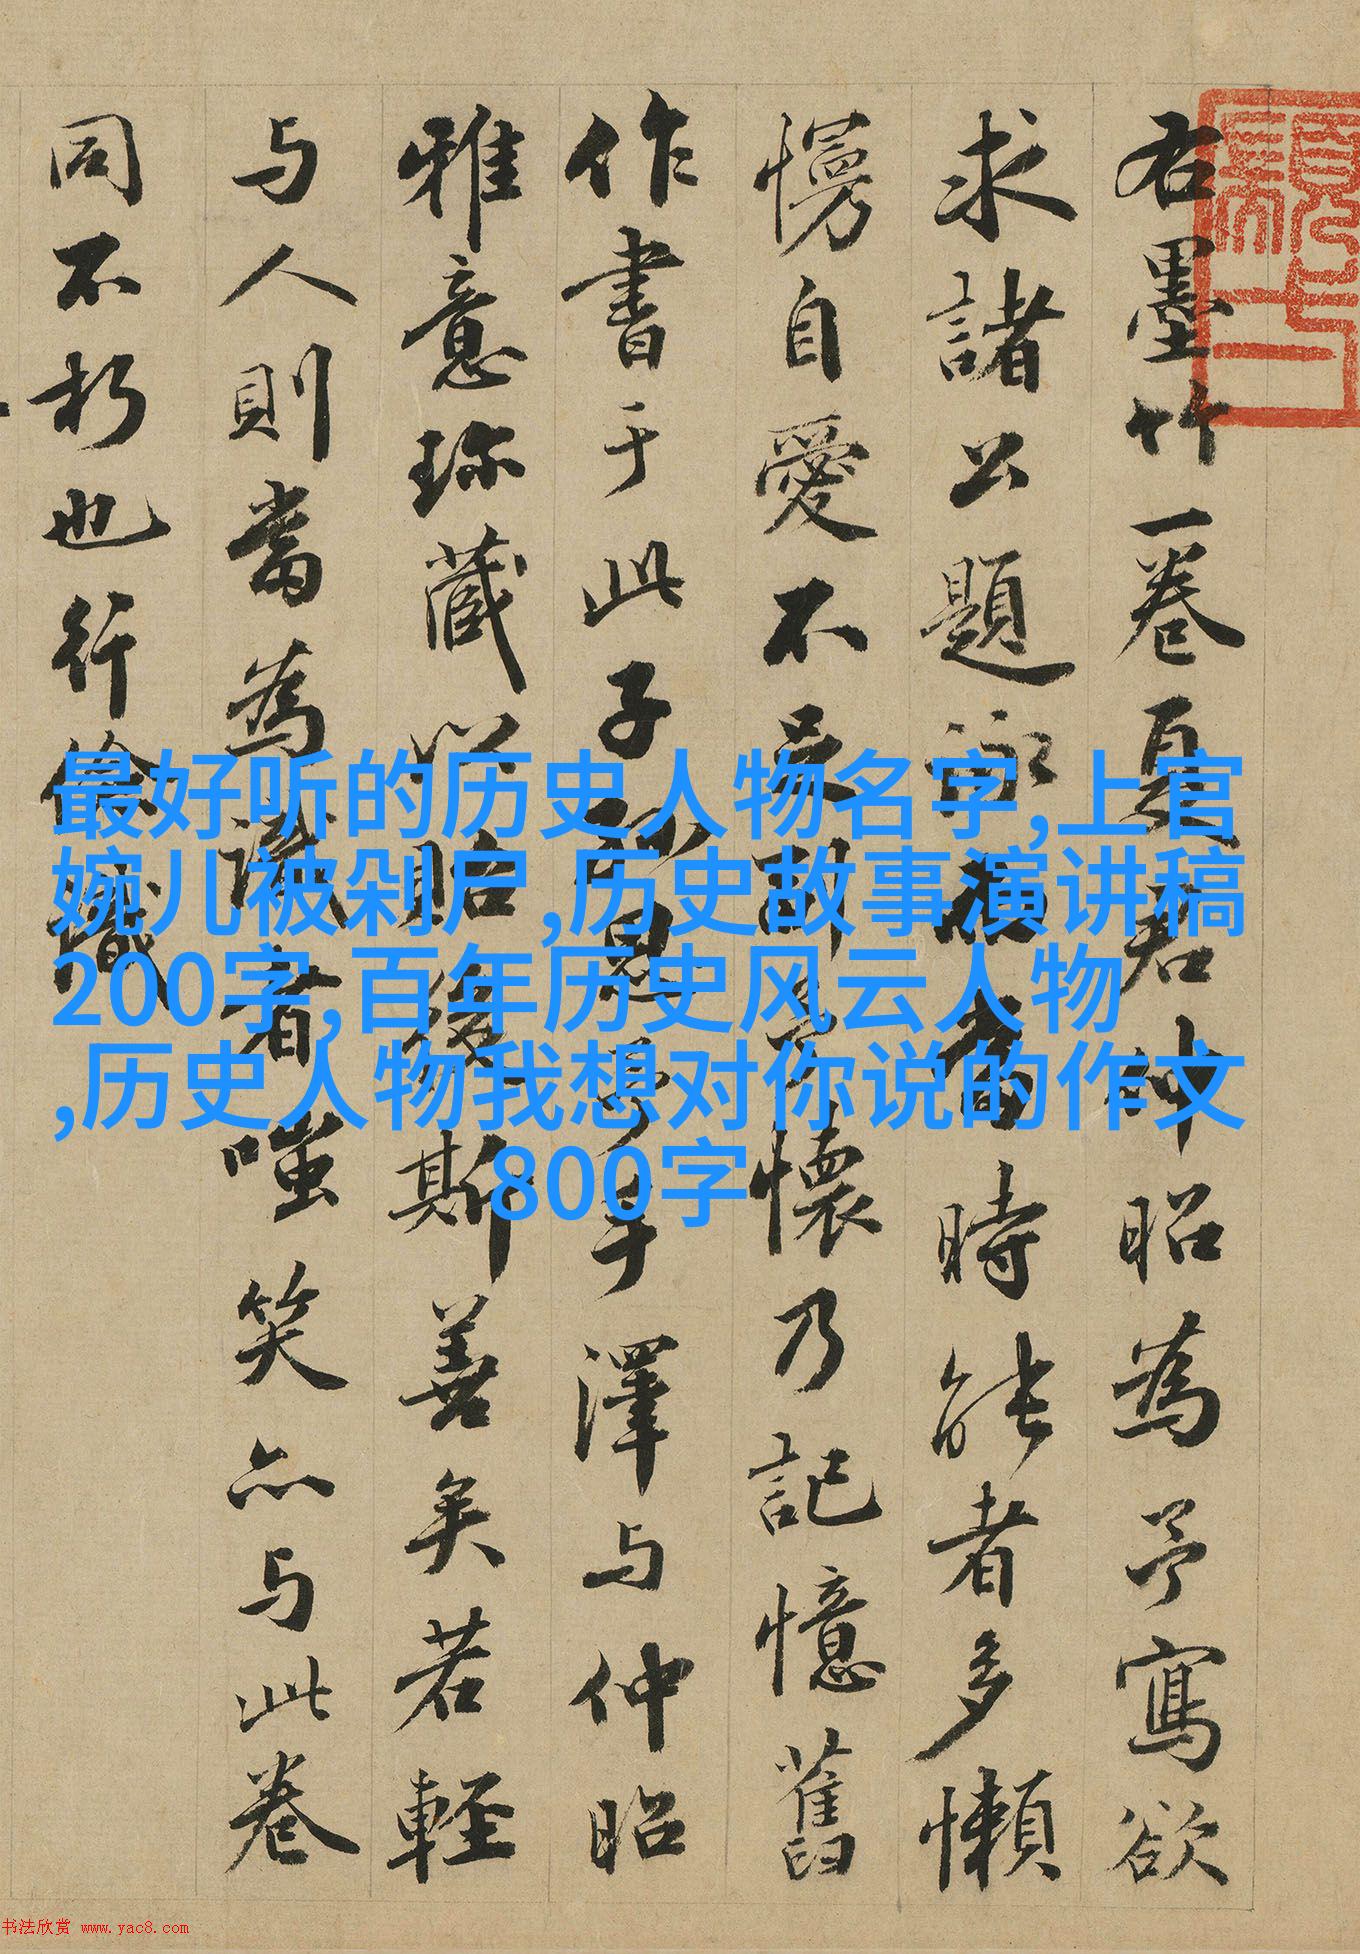 右墨竹一卷夏君仲昭為予寫欲
求諸公題詠時能者多懶
慢自愛不副懷乃記憶舊
作書于此子孫思予手澤与仲昭
雅意珍藏以貽後斯善矣若輕
与人則當為識者嗤笑亦与此卷
同不朽也行儉識
最好听的历史人物名字,上官
婉儿被剁尸,历史故事演讲稿
200字,百年历史风云人物
,历史人物我想对你说的作文
800字
书法欣赏 www.yac8.com